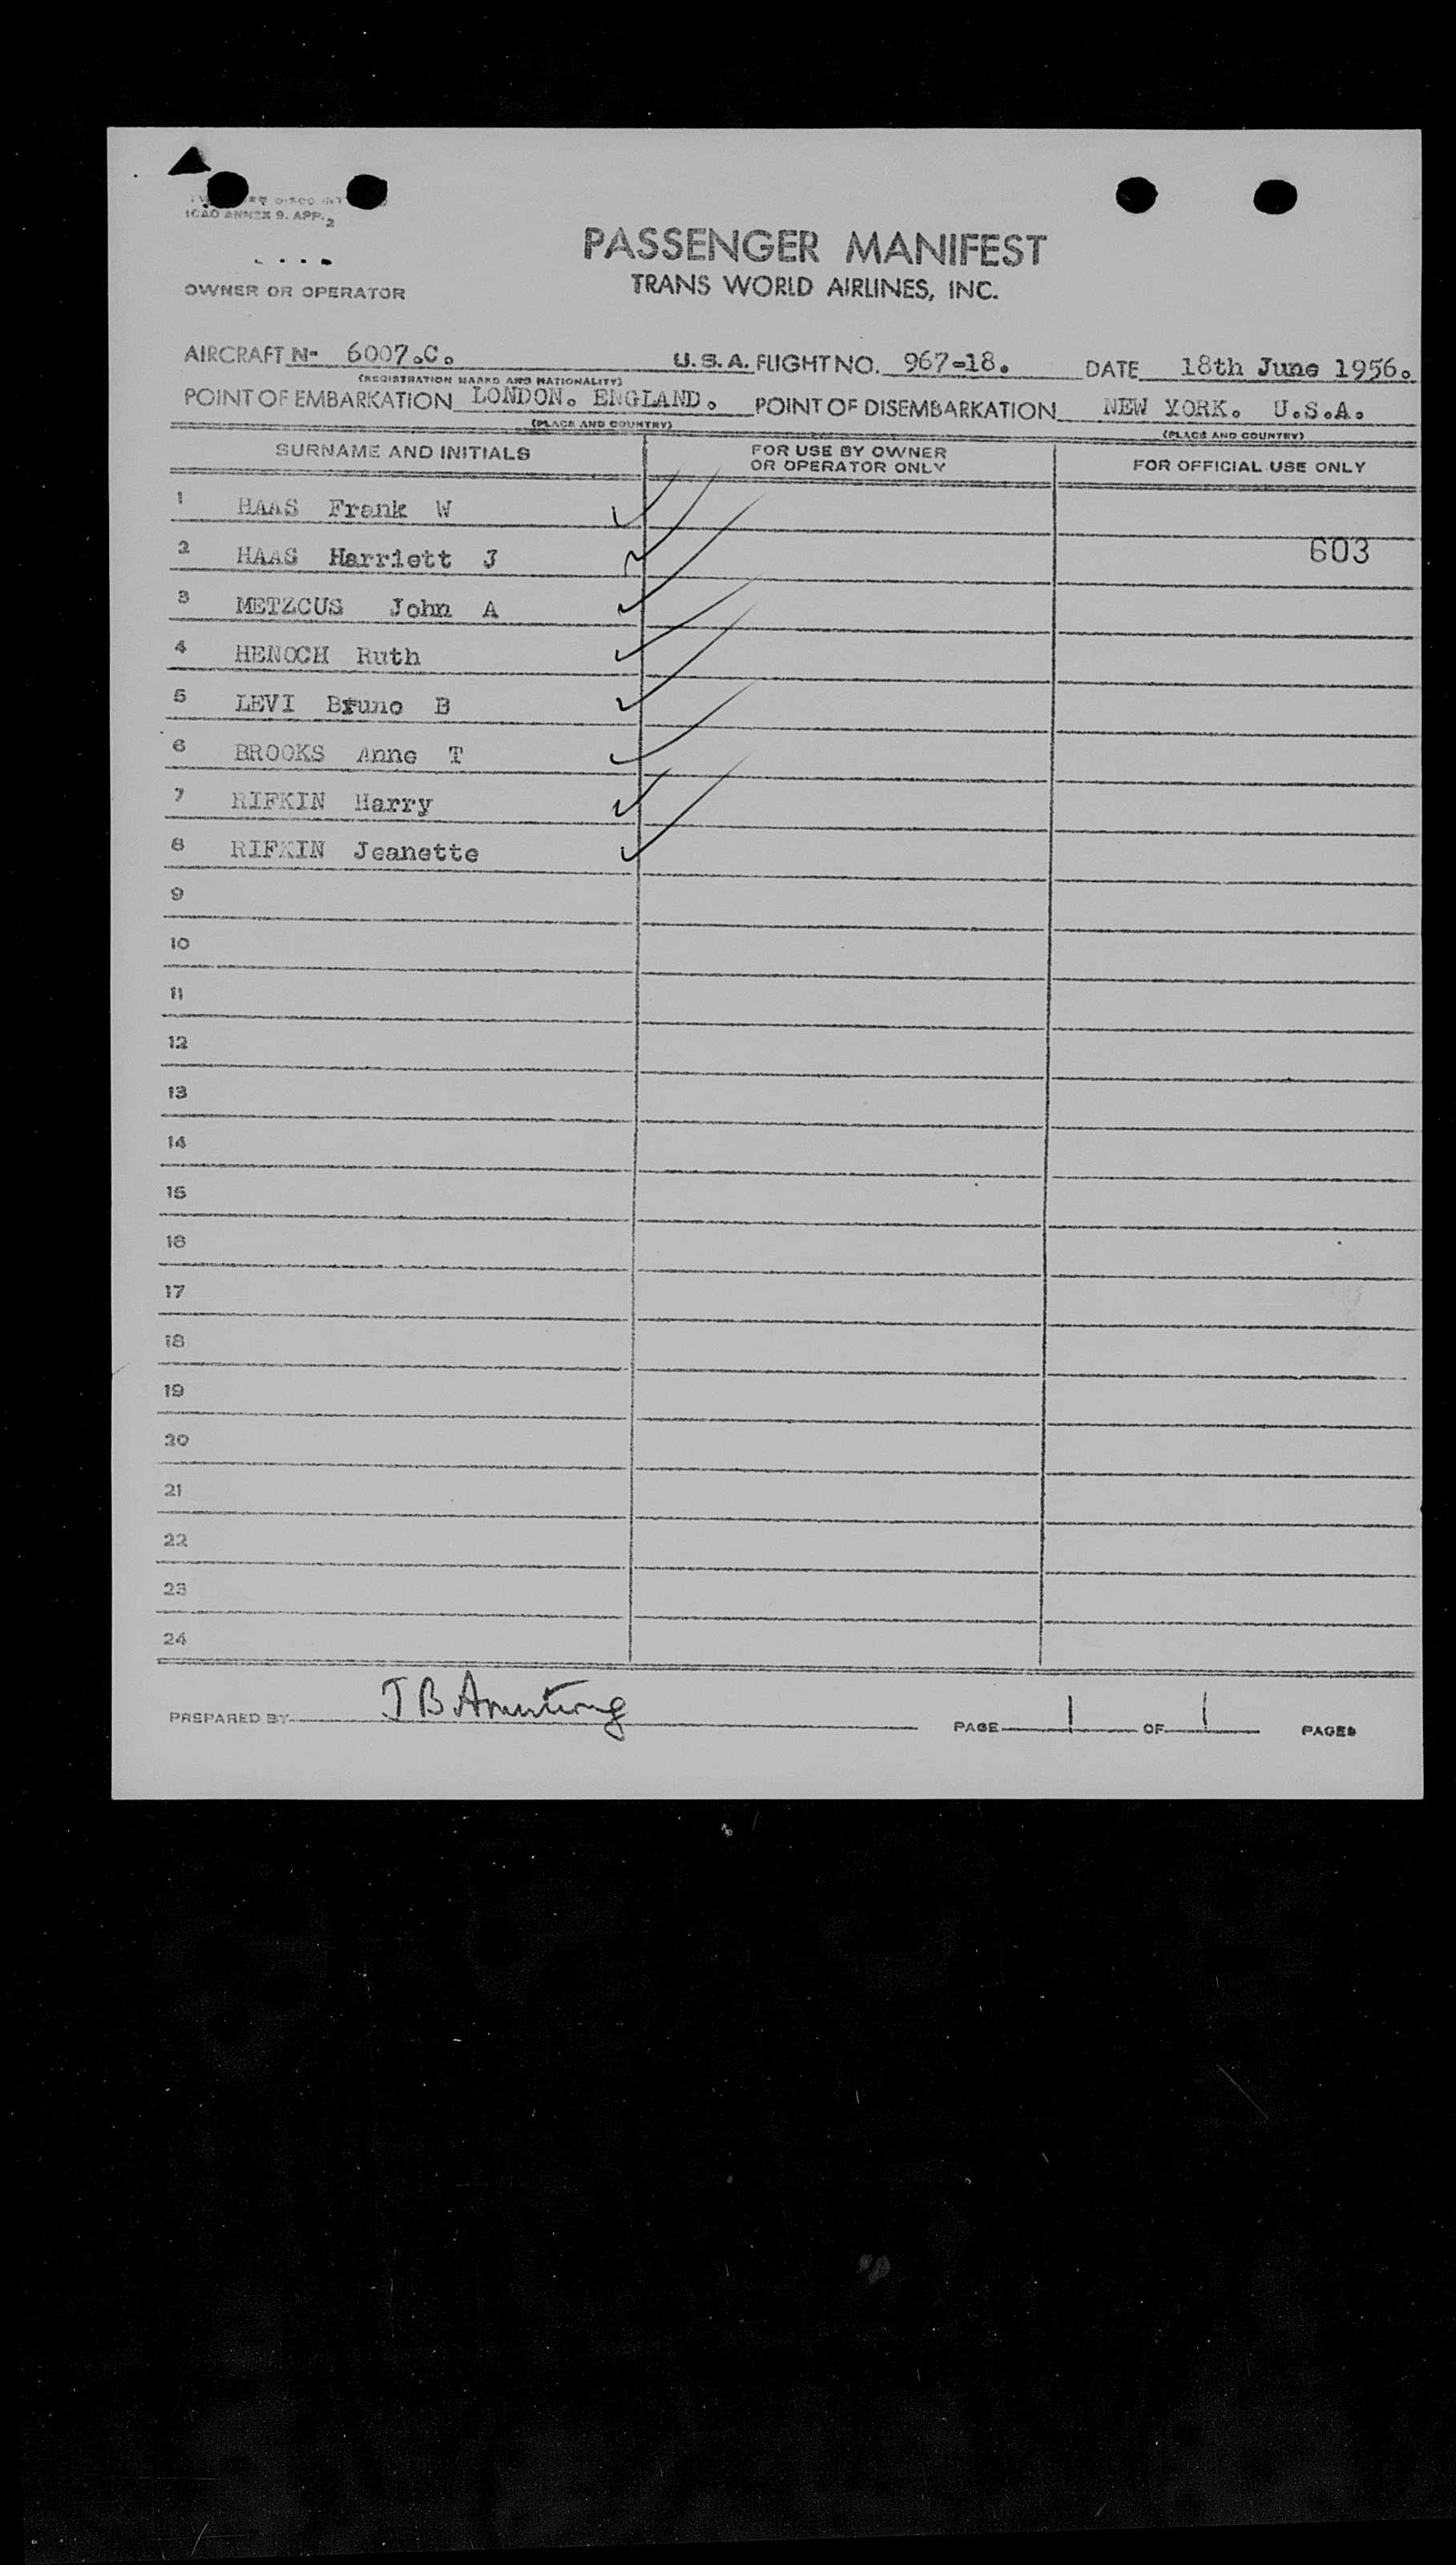 ICAO ANNEX 9. APP. 2
OWNER OR OPERATOR
PASSENGER MANIFEST
TRANS WORLD AIRLINES, INC.
AIRCRAFT N- 6007.C. U.S.A. FLIGHT NO. 967-18. DATE 18th June 1956.
(REGISTRATION MARKS AND NATIONALITY)
POINT OF EMBARKATION LONDON. ENGLAND. POINT OF DISEMBARKATION NEW YORK. U.S.A.
(PLACE AND COUNTRY) (PLACE AND COUNTRY)
SURNAME AND INITIALS FOR USE BY OWNER OR OPERATOR ONLY FOR OFFICIAL USE ONLY
1 HAAS Frank W
2 HAAS Harriett J 603
3 METZCUS John A
4 HENOCH Ruth
5 LEVI Bruno B
6 BROOKS Anne T
7 RIFKIN Harry
8 RIFKIN Jeanette
9
10
11
12
13
14
15
16
17
18
19
20
21
22
23
24
PREPARED BY J B Armstrong PAGE 1 OF 1 PAGES